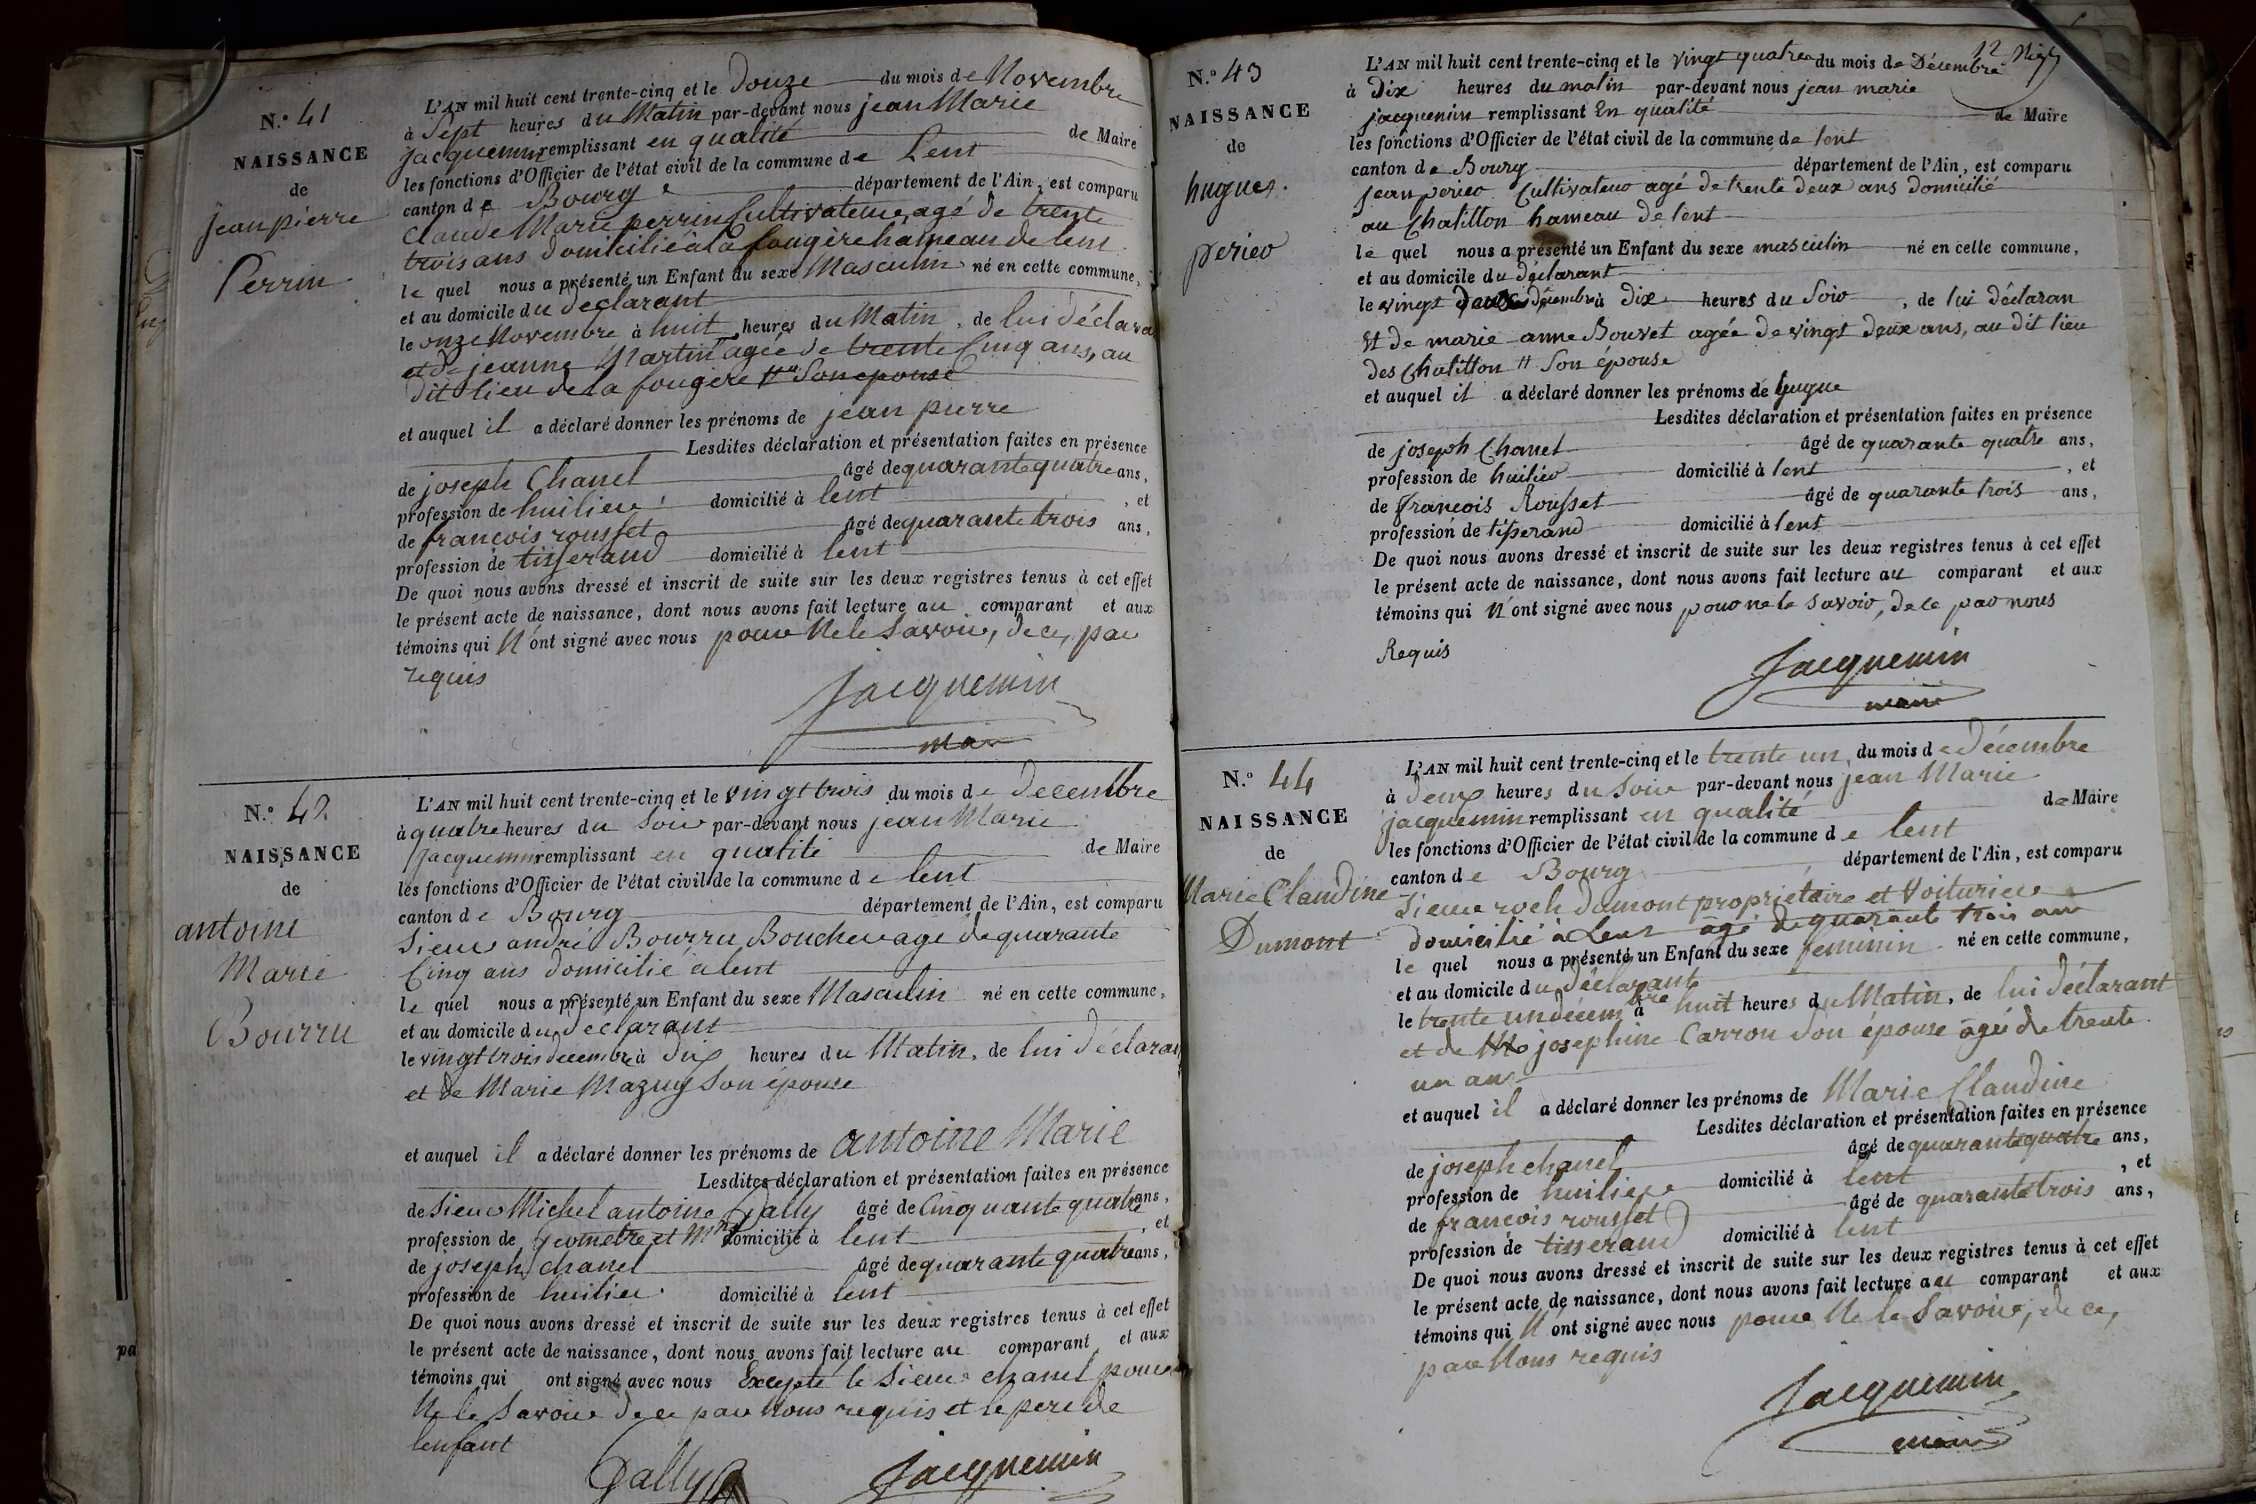 N.º 41
NAISSANCE
de
jean pierre
Perrin
L'AN mil huit cent trente-cinq et le Douze du mois de Novembre
à Sept heures du Matin par-devant nous jean Marie
jacquemin remplissant en qualité de Maire
les fonctions d'Officier de l'état civil de la commune de Lent
canton de Bourg département de l'Ain, est comparu
Claude Marie perrin Cultivateur, agé de trente
trois ans domicilié à la fougère hameau de lent
le quel nous a présenté un Enfant du sexe Masculin né en cette commune,
et au domicile du déclarant
le onze Novembre à huit heures du Matin, de lui déclara
et de jeanne Martin agée de trente Cinq ans, au
dit lieu de la fougère Son epouse
et auquel il a déclaré donner les prénoms de jean pierre
Lesdites déclaration et présentation faites en présence
de joseph Chanel âgé de quarante quatre ans,
profession de huilier domicilié à lent, et
de françois rousset âgé de quarante trois ans,
profession de tisserand domicilié à lent
De quoi nous avons dressé et inscrit de suite sur les deux registres tenus à cet effet
le présent acte de naissance, dont nous avons fait lecture au comparant et aux
témoins qui N'ont signé avec nous pour Ne le Savoir, de ce, par
requis
Jacquemin
N.º 42
NAISSANCE
de
antoine
Marie
Bourru
L'AN mil huit cent trente-cinq et le vingt trois du mois de Decembre
à quatre heures du Soir par-devant nous jean Marie
jacquemin remplissant en qualité de Maire
les fonctions d'Officier de l'état civil de la commune de lent
canton de Bourg département de l'Ain, est comparu
Sieur andré Bourru Boucher agé de quarante
Cinq ans domicilié à lent
le quel nous a présenté un Enfant du sexe Masculin né en cette commune,
et au domicile du déclarant
le vingt trois decembre à dix heures du Matin, de lui déclaran
et de Marie Mazuy Son épouse
et auquel il a déclaré donner les prénoms de antoine Marie
Lesdites déclaration et présentation faites en présence
de Sieur Michel antoine Dally âgé de Cinquante quatre ans,
profession de geometre et domicilié à lent, et
de joseph chanel âgé de quarante quatre ans,
profession de huilier domicilié à lent
De quoi nous avons dressé et inscrit de suite sur les deux registres tenus à cet effet
le présent acte de naissance, dont nous avons fait lecture au comparant et aux
témoins qui ont signé avec nous Excepté le Sieur chanel pour
Ne le Savoir de ce par Nous requis et le pere de
lenfant
Dally Jacquemin
N.º 43
NAISSANCE
de
hugues
perier
12
L'AN mil huit cent trente-cinq et le vingt quatre du mois de Décembre
à Dix heures du matin par-devant nous jean marie
jacquemin remplissant En qualité de Maire
les fonctions d'Officier de l'état civil de la commune de lent
canton de Bourg département de l'Ain, est comparu
jean perier Cultivateur agé de trente deux ans domicilié
au Chatillon hameau de lent
le quel nous a présenté un Enfant du sexe masculin né en cette commune,
et au domicile du déclarant
le vingt décembre à Dix heures du Soir, de lui déclaran
Et de marie anne Bouvet agée de vingt deux ans, au dit lieu
des Chatillon Son épouse
et auquel il a déclaré donner les prénoms de hugue
Lesdites déclaration et présentation faites en présence
de joseph Chanel âgé de quarante quatre ans,
profession de huilier domicilié à lent, et
de François Rousset âgé de quarante trois ans,
profession de tisserand domicilié à lent
De quoi nous avons dressé et inscrit de suite sur les deux registres tenus à cet effet
le présent acte de naissance, dont nous avons fait lecture au comparant et aux
témoins qui N'ont signé avec nous pour ne le Savoir, de ce par nous
Requis
Jacquemin
maire
N.º 44
NAISSANCE
de
Marie Claudine
Dumont
L'AN mil huit cent trente-cinq et le trente un du mois de décembre
à deux heures du Soir par-devant nous jean Marie
jacquemin remplissant en qualité de Maire
les fonctions d'Officier de l'état civil de la commune de lent
canton de Bourg département de l'Ain, est comparu
Sieur roch dumont propriétaire et Voiturier
domicilié à Lent agé de quarante trois ans
le quel nous a présenté un Enfant du sexe feminin né en cette commune,
et au domicile du déclarant
le trente un décembre à huit heures du Matin, de lui déclarant
et de josephine Carron Son épouse agée de trente
un ans
et auquel il a déclaré donner les prénoms de Marie Claudine
Lesdites déclaration et présentation faites en présence
de joseph chanel âgé de quarante quatre ans,
profession de huilier domicilié à lent, et
de françois rousset âgé de quarante trois ans,
profession de tisserand domicilié à lent
De quoi nous avons dressé et inscrit de suite sur les deux registres tenus à cet effet
le présent acte de naissance, dont nous avons fait lecture au comparant et aux
témoins qui N'ont signé avec nous pour Ne le Savoir, de ce,
par Nous requis
Jacquemin
maire